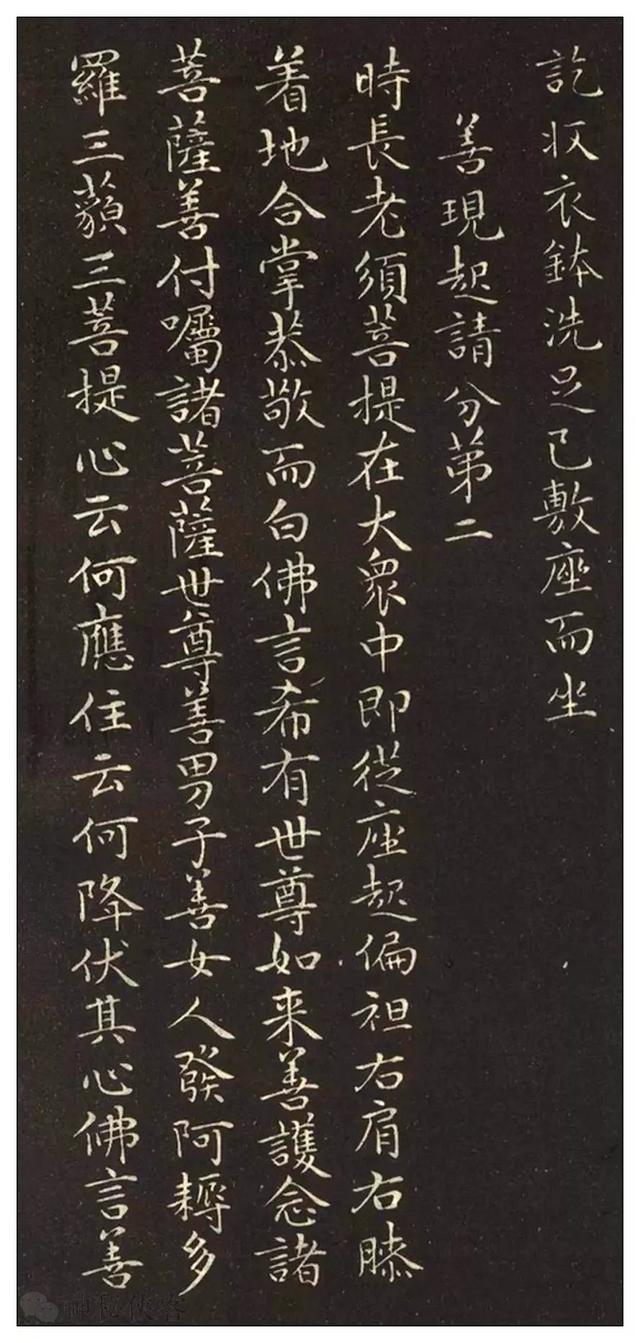 訖收衣鉢洗足已敷座而坐
善現起請分第二
時長老須菩提在大衆中即從座起偏袒右肩右膝
着地合掌恭敬而白佛言希有世尊如来善護念諸
菩薩善付囑諸菩薩世尊善男子善女人發阿耨多
羅三藐三菩提心云何應住云何降伏其心佛言善
神秘侠客